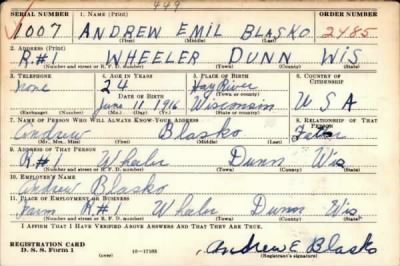 449
SERIAL NUMBER 1. NAME (Print) ORDER NUMBER
1007 ANDREW EMIL BLASKO 2485
2. ADDRESS (Print)
R.#1 WHEELER DUNN WIS
(Number and street or R. F. D. number) (Town) (County) (State)
3. TELEPHONE 4. AGE IN YEARS 5. PLACE OF BIRTH 6. COUNTRY OF CITIZENSHIP
None 24 Hay River
DATE OF BIRTH (Town or county)
June 11, 1916 Wisconsin U S A
(Exchange) (Number) (Mo.) (Day) (Yr.) (State or country)
7. NAME OF PERSON WHO WILL ALWAYS KNOW YOUR ADDRESS 8. RELATIONSHIP OF THAT PERSON
Andrew Blasko Father
(Mr., Mrs., Miss) (First) (Middle) (Last)
9. ADDRESS OF THAT PERSON
R#1 Wheeler Dunn Wis
(Number and street or R. F. D. number) (Town) (County) (State)
10. EMPLOYER'S NAME
Andrew Blasko
11. PLACE OF EMPLOYMENT OR BUSINESS
Farm R#1 Wheeler Dunn Wis.
(Number and street or R. F. D. number) (Town) (County) (State)
I AFFIRM THAT I HAVE VERIFIED ABOVE ANSWERS AND THAT THEY ARE TRUE.
REGISTRATION CARD
D. S. S. Form 1 (over) 16—17105 Andrew E Blasko
(Registrant's signature)